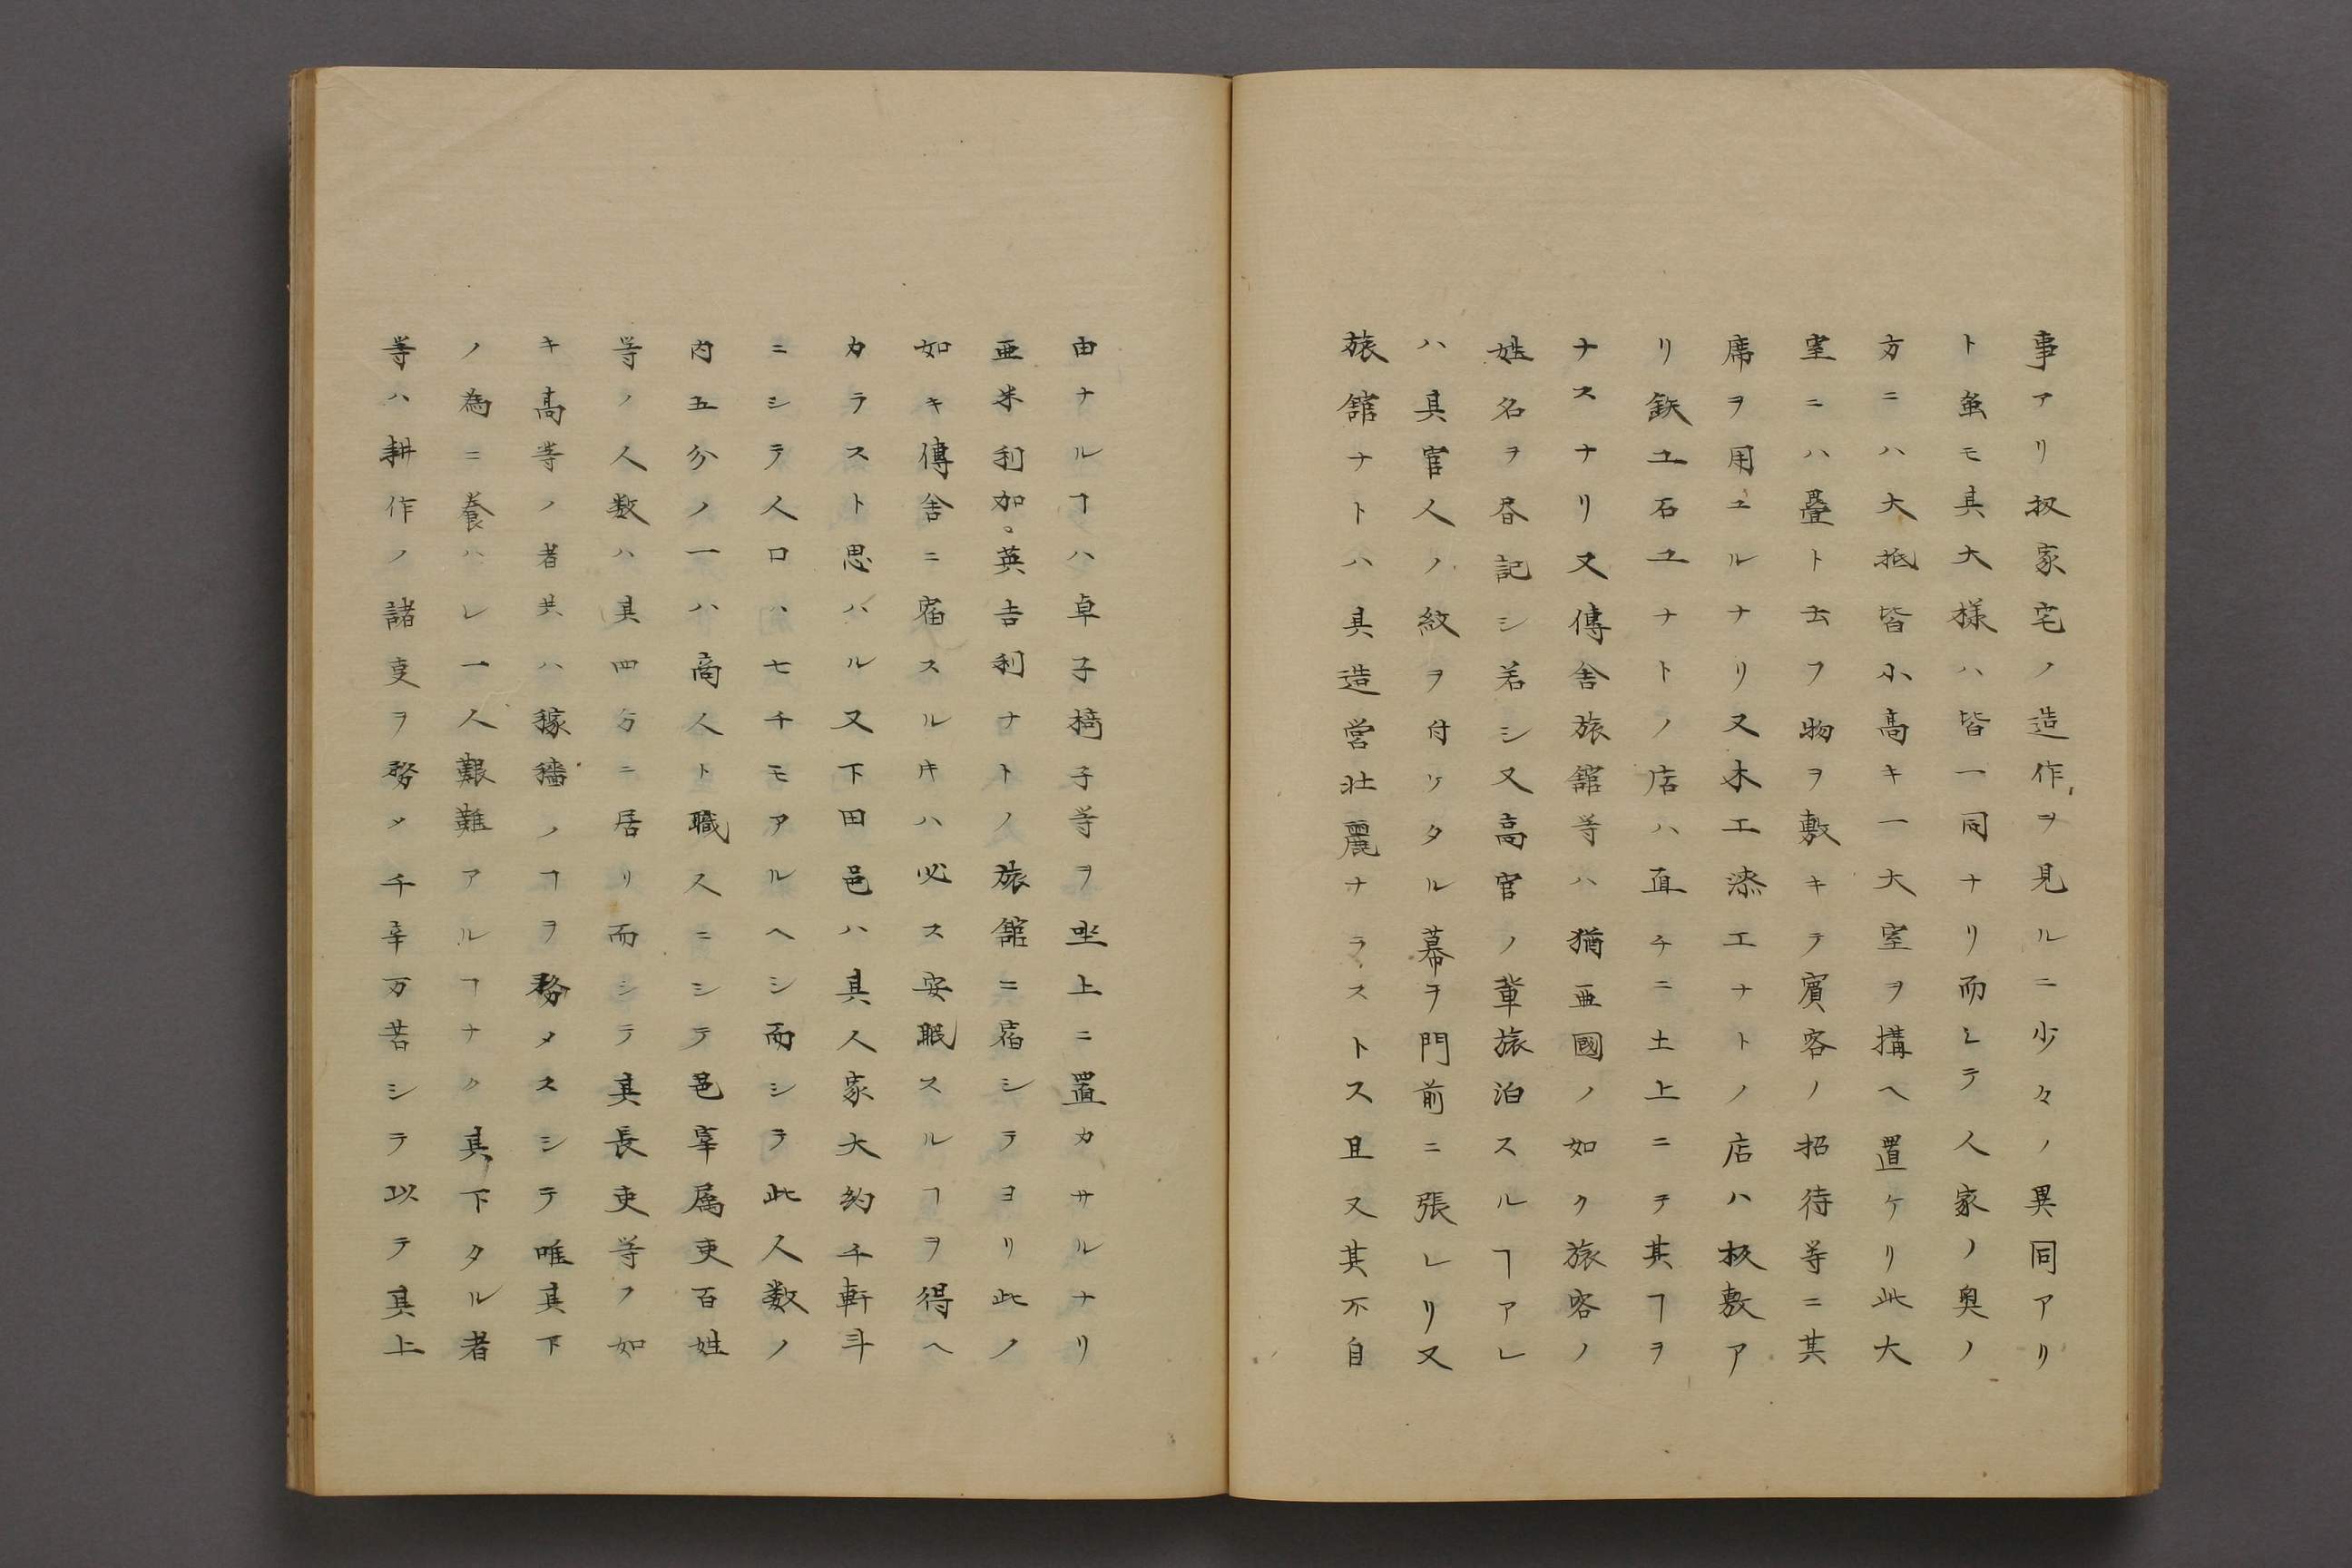 事アリ扨家宅ノ造作ヲ見ルニ少々ノ異同アリ
ト虽モ其大様ハ皆一同ナリ而シテ人家ノ奥ノ
方ニハ大抵皆小高キ一大室ヲ搆ヘ置ケリ此大
室ニハ疊ト云フ物ヲ敷キテ賓客ノ招待等ニ其
席ヲ用ユルナリ又木工漆工ナトノ店ハ板敷ア
リ鉄工石工ナトノ店ハ直チニ土上ニテ其ヿヲ
ナスナリ又傳舎旅舘等ハ猶亜國ノ如ク旅客ノ
姓名ヲ昏記シ若シ又高官ノ軰旅泊スルヿアレ
ハ其官人ノ紋ヲ付ケタル幕ヲ門前ニ張レリ又
旅舘ナトハ其造営壮麗ナラストス且又其不自
由ナルヿハ卓子椅子等ヲ坐上ニ置カサルナリ
亜米利加英吉利ナトノ旅舘ニ宿シテヨリ此ノ
如キ傳舎ニ宿スルキハ必ス安眠スルヿヲ得ヘ
カラスト思ハル又下田邑ハ其人家大約千軒斗
ニシテ人口ハ七千モアルヘシ而シテ此人数ノ
内五分ノ一ハ商人ト職人ニシテ邑宰属吏百姓
等ノ人数ハ其四分ニ居リ而シテ其長吏等ノ如
キ高等ノ者共ハ稼穡ノヿヲ務メスシテ唯其下
ノ為ニ養ハレ一人艱難アルヿナク其下タル者
等ハ耕作ノ諸㕝ヲ務メ千辛万苦シテ以テ其上